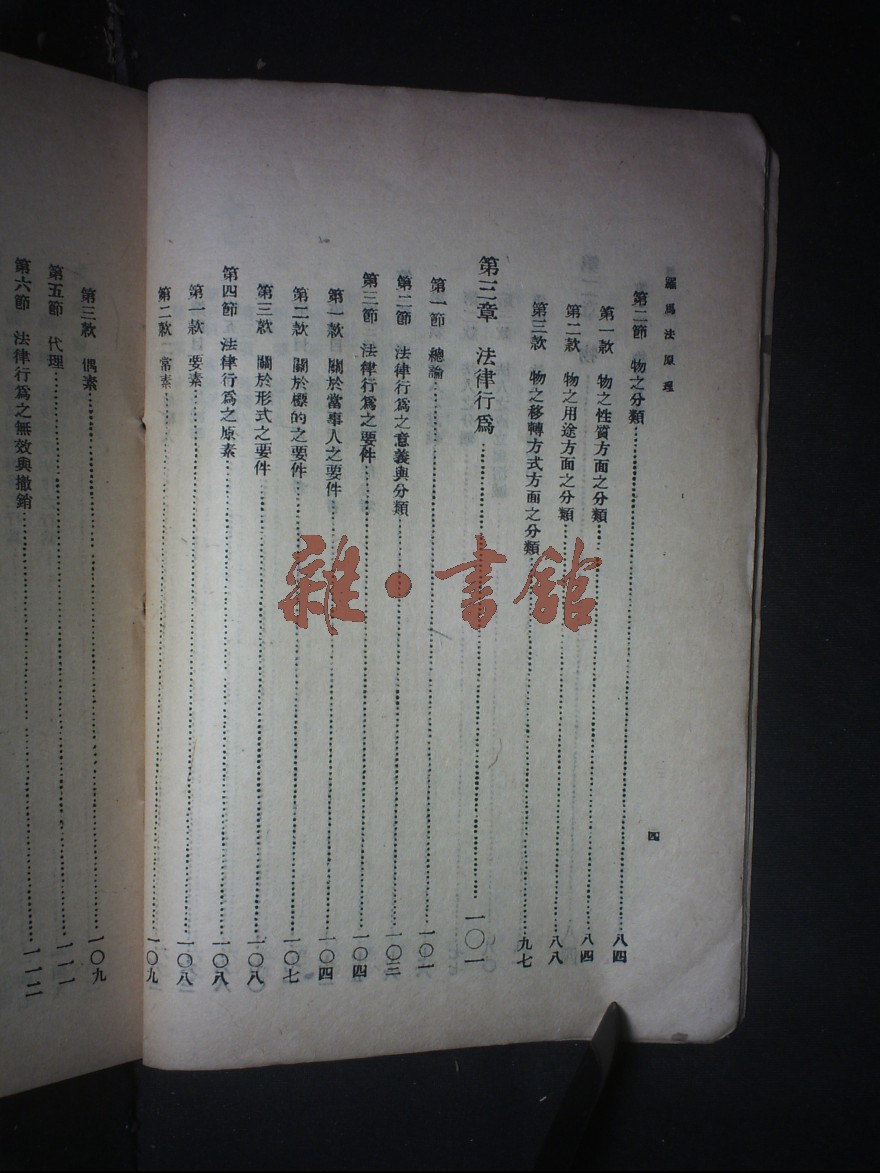 羅馬法原理
四
第二節　物之分類……八四
第一款　物之性質方面之分類……八四
第二款　物之用途方面之分類……八八
第三款　物之移轉方式方面之分類……九七
第三章　法律行爲……一〇一
第一節　總論……一〇一
第二節　法律行爲之意義與分類……一〇三
第三節　法律行爲之要件……一〇四
第一款　關於當事人之要件……一〇四
第二款　關於標的之要件……一〇七
第三款　關於形式之要件……一〇八
第四節　法律行爲之原素……一〇八
第一款　要素……一〇八
第二款　常素……一〇九
第三款　偶素……一〇九
第五節　代理……一一一
第六節　法律行爲之無效與撤銷……一一二
雜·書館